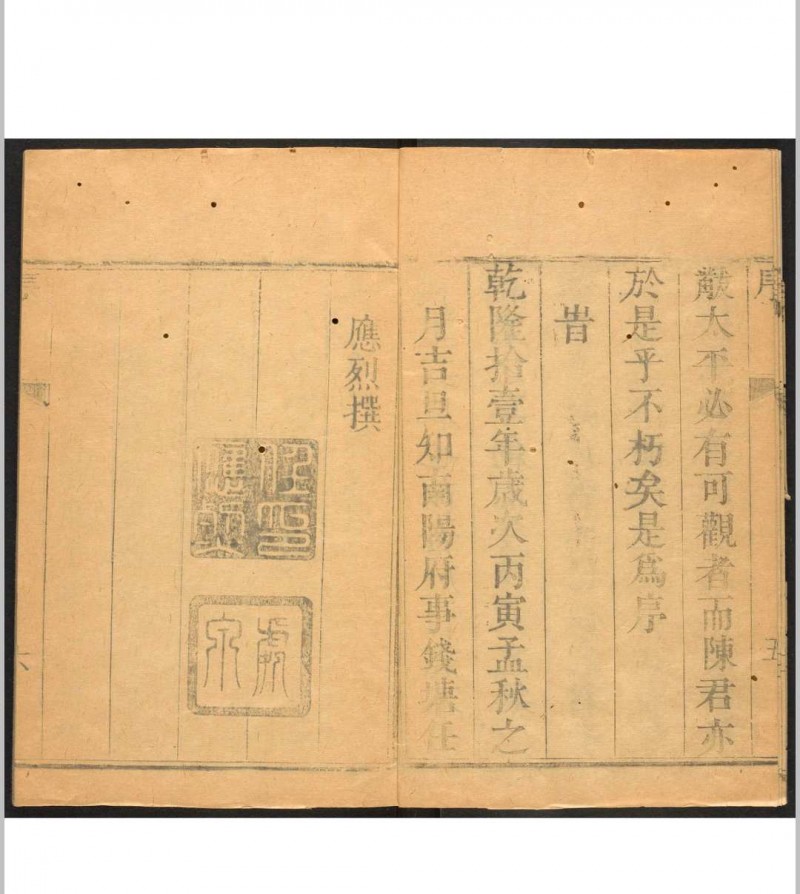 序
黻太平必有可觀者而陳君亦
於是乎不朽矣是爲序
旹
乾隆拾壹年歲次丙寅孟秋之
月吉旦知南陽府事錢塘任
五
應烈撰
六